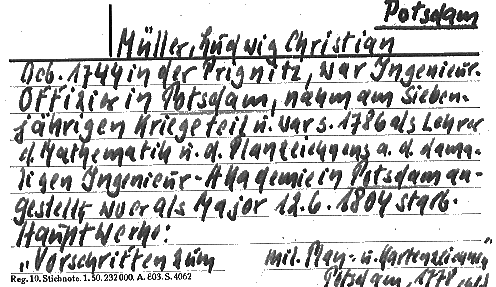 Potsdam
Müller, Ludwig Christian
Geb. 1744 in der Prignitz, war Ingenieur-
Offizier in Potsdam, nahm am Sieben-
jährigen Kriege teil u. war s. 1786 als Lehrer
d. Mathematik u. d. Planzeichnens a. d. dama-
ligen Ingenieur-Akademie in Potsdam an-
gestellt wo er als Major 12.6.1804 starb.
Hauptwerke:
„Vorschriften zum mil. Plan- u. Kartenzeichnen"
Reg. 10. Stichnote. 1. 50. 232 000. A. 803. S. 4062
Potsdam, 1778